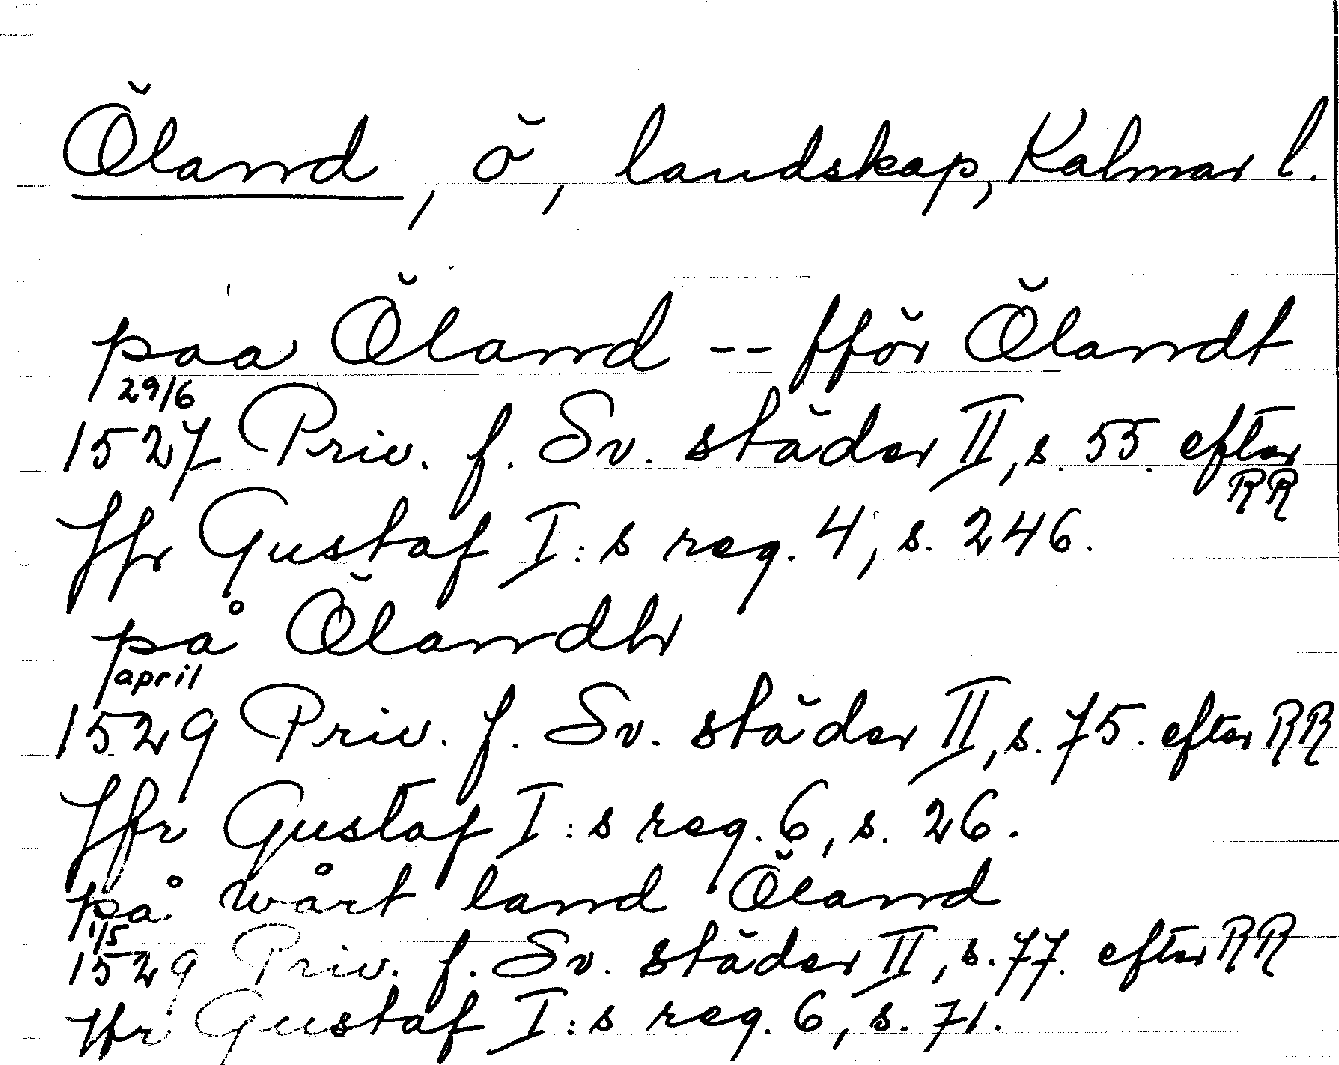 Öland, ö, landskap, Kalmar l.
paa Öland -- fför Ölandt
29/6
1527 Priv. f. Sv. städer II, s. 55. efter RR
Jfr Gustaf I:s reg. 4, s. 246.
på Ölandh
april
1529 Priv. f. Sv. städer II, s. 75. efter RR
Jfr Gustaf I:s reg. 6, s. 26.
på wårt land Öland
1/5
1529 Priv. f. Sv. städer II, s. 77. efter RR
Jfr Gustaf I:s reg. 6, s. 71.